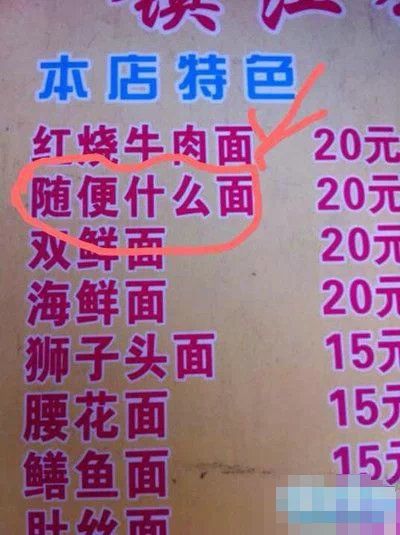 镇江
本店特色
红烧牛肉面 20元
随便什么面 20元
双鲜面 20元
海鲜面 20元
狮子头面 15元
腰花面 15元
鳝鱼面 15元
肚丝面